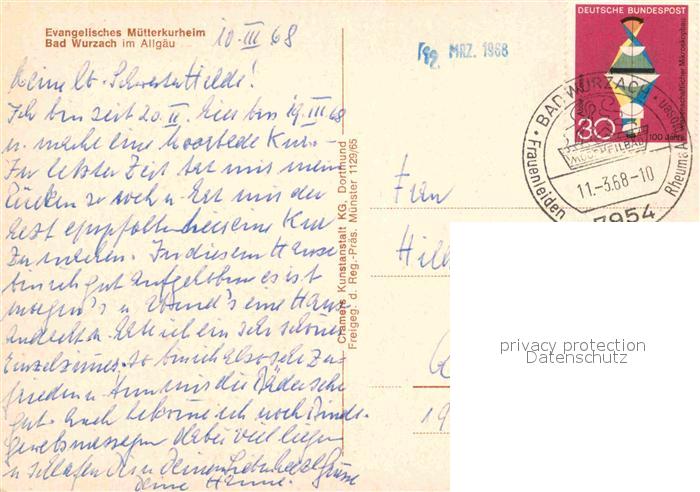 Evangelisches Mütterkurheim
Bad Wurzach im Allgäu
10-III 68
MRZ. 1968
Meine lb. Schwester Hilde!
Ich bin seit 20.II. hier bis 19.III 68
u. mache eine Moorbadekur.-
In letzter Zeit tat mir mein
Rücken so weh u. hat mir der
Arzt empfohlen hier eine Kur
zu machen. In diesem Hause
bin ich gut aufgehoben es ist
morgen's u. Abend's eine Haus-
andacht. Habe ich ein sehr schönes
Einzelzimmer. so bin ich also sehr zu-
frieden u. tun mir die Bäder sehr
gut. Auch bekomme ich noch Binde-
gewebsmassagen dabei viel liegen
u. schlafen. Grüße
Deine Hanne.
Cramers Kunstanstalt KG, Dortmund
Freigeg. d. Reg.-Präs. Münster 1129/65
Frau
Hil
19
DEUTSCHE BUNDESPOST
30
100 Jahre wissenschaftlicher Mikroskopbau
BAD WURZACH
MOORHEILBAD
11.-3.68-10
Frauenleiden
Rheuma
7954
privacy protection
Datenschutz